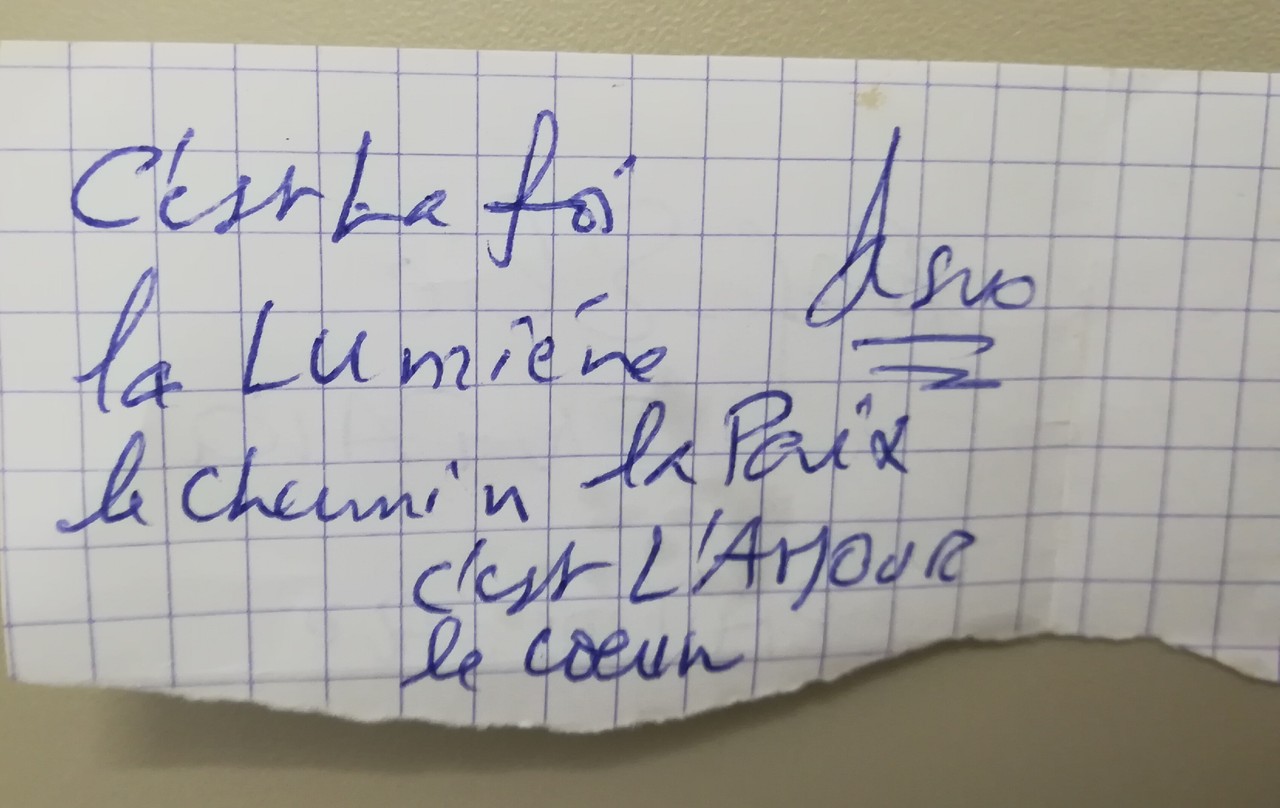 C'est La foi
la Lumière
le chemin la Paix
c'est L'AMOUR
le coeur